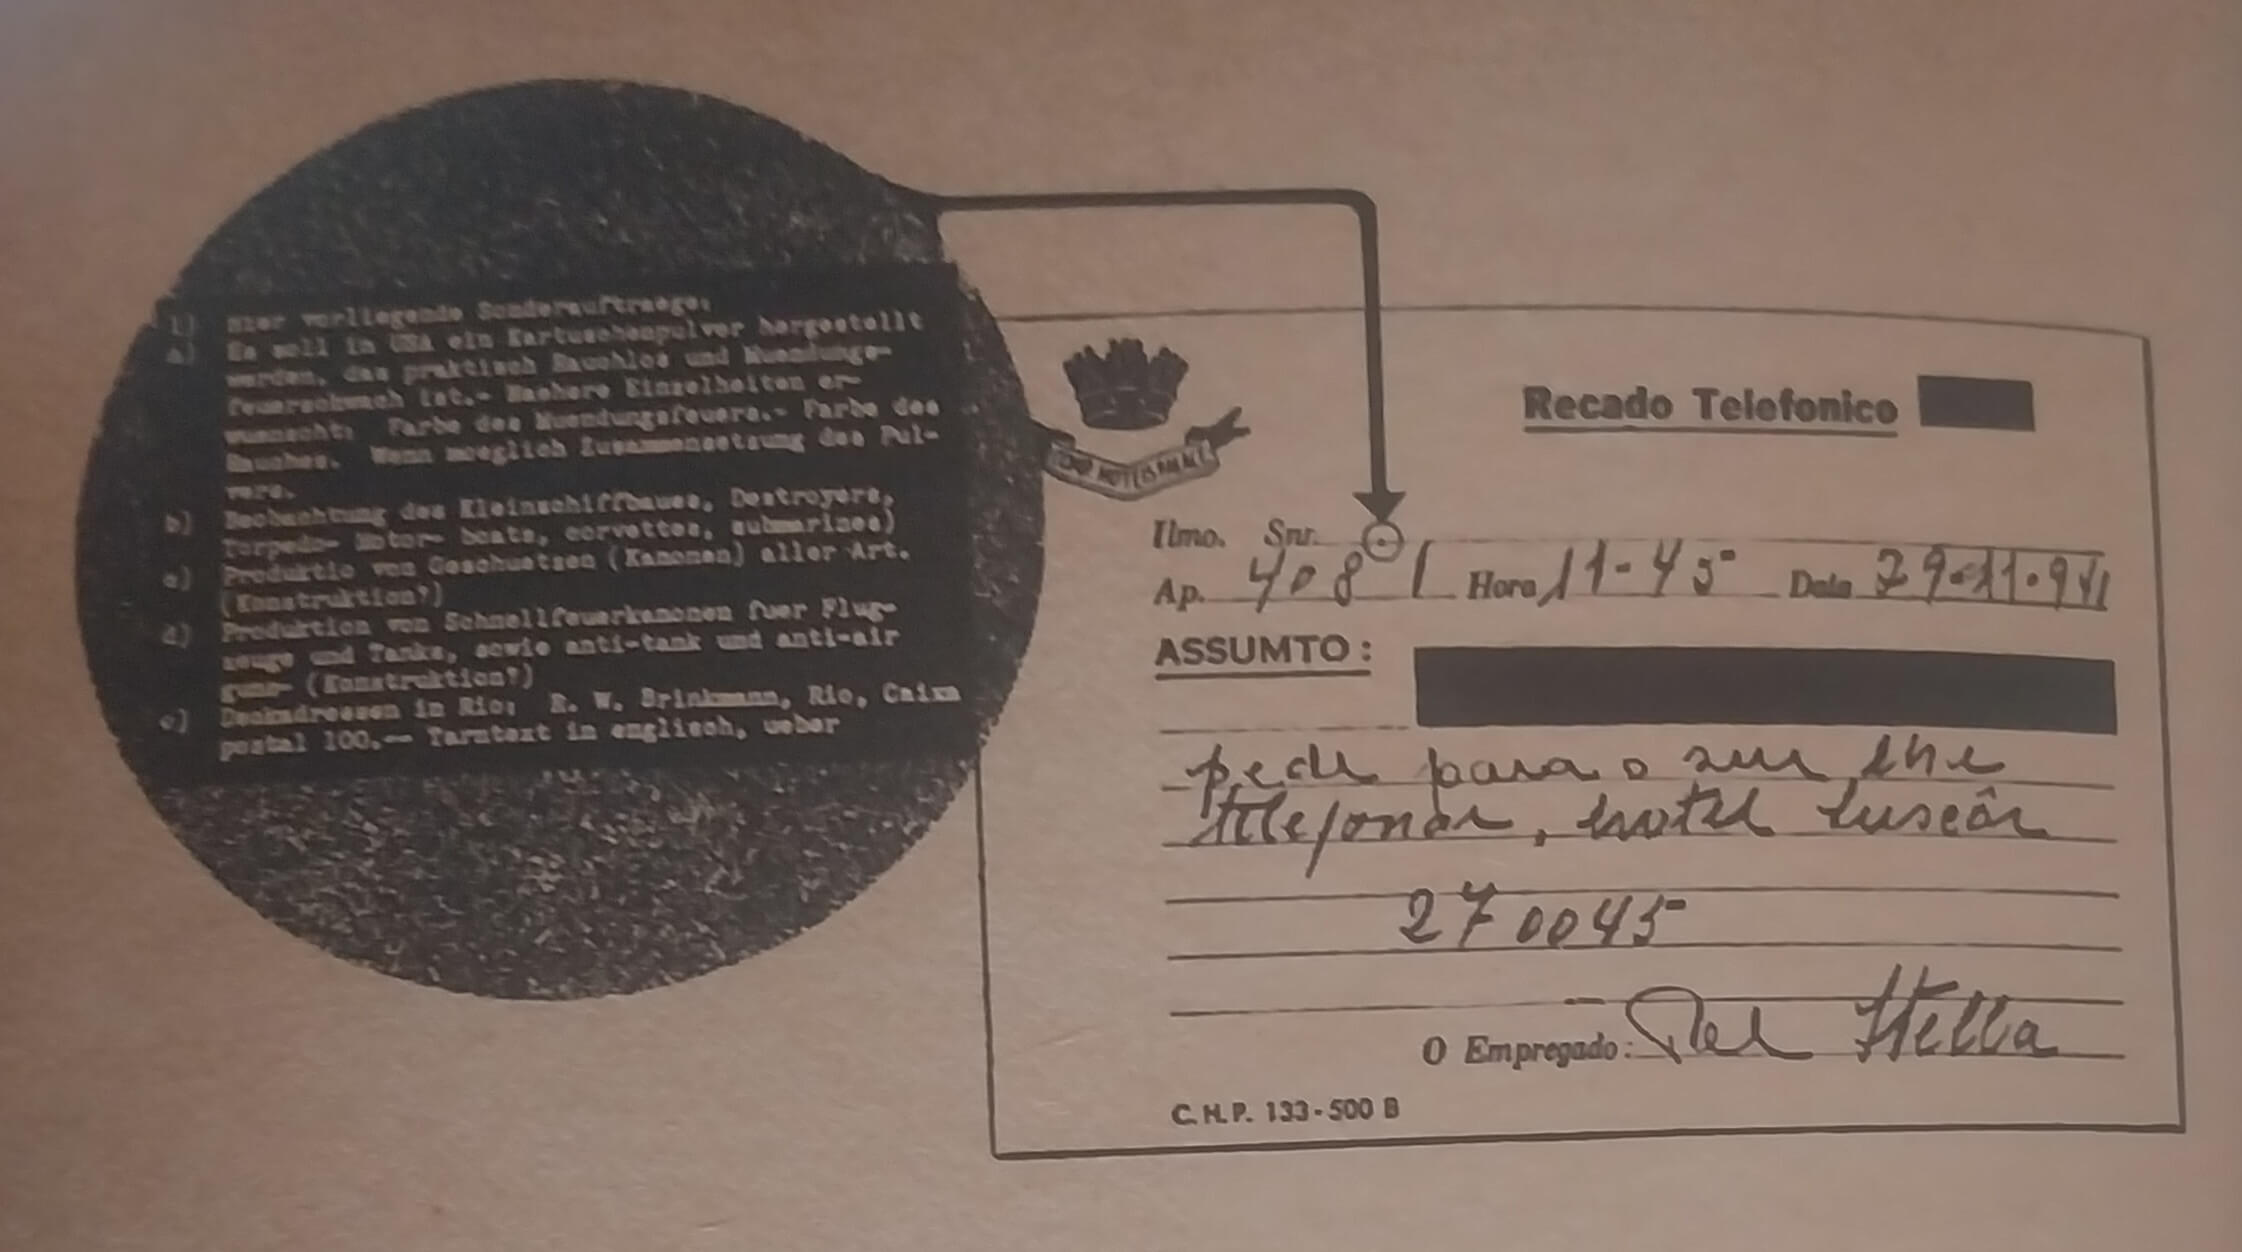 1) Hier vorliegende Sonderauftraege:
a) Es soll in USA ein Kartuschenpulver hergestellt
werden, das praktisch Rauchlos und Muendungs-
feuerschwach ist.- Naehere Einzelheiten er-
wuenscht: Farbe des Muendungsfeuers.- Farbe des
Rauches. Wenn moeglich Zusammensetzung des Pul-
vers.
b) Beobachtung des Kleinschiffbaues, Destroyers,
Torpedo- Motor- boats, corvettes, submarines)
c) Produktio von Geschuetzen (Kanonen) aller Art.
(Konstruktion?)
d) Produktion von Schnellfeuerkanonen fuer Flug-
zeuge und Tanks, sowie anti-tank und anti-air
guns- (Konstruktion?)
e) Deckadressen in Rio: R. W. Brinkmann, Rio, Caixa
postal 100.-- Tarntext in englisch, ueber
Recado Telefonico
HOTEIS PALACE
Ilmo. Snr.
Ap. 408 Hora 11-45 Data 29-11-941
ASSUMTO:
pede para o snr lhe
telefonar, hotel
270045
O Empregado: Tel Stella
C.H.P. 133-500 B